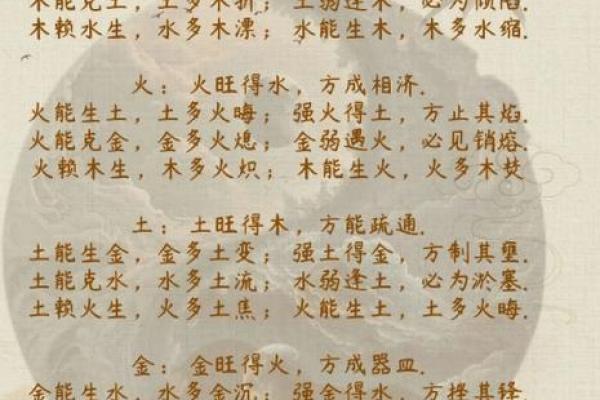 木能克土，土多木折；土弱逢木，必为倾陷.
木赖水生，水多木漂；水能生木，木多水缩.
火：火旺得水，方成相济.
火能生土，土多火晦；强火得土，方止其焰.
火能克金，金多火熄；金弱遇火，必见销熔.
火赖木生，木多火炽；木能生火，火多木焚
土：土旺得木，方能疏通.
土能生金，金多土变；强土得金，方制其壅.
土能克水，水多土流；水弱逢土，必为淤塞.
土赖火生，火多土焦；火能生土，土多火晦.
金：金旺得火，方成器皿.
金能生水，水多金沉；强金得水，方挫其锋.